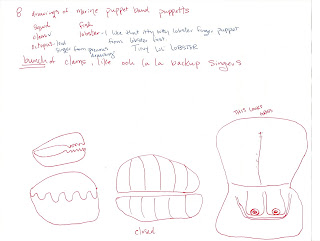 8 drawings of marine puppet band puppetts
squid fish
clams lobster - I like that itty bitty lobster finger puppet
octopus - lead from lobster fest.
singer from previous Tiny lil LOBSTER
drawing
bunch of clams, like ooh la la backup singers
THIS LOWER
closed